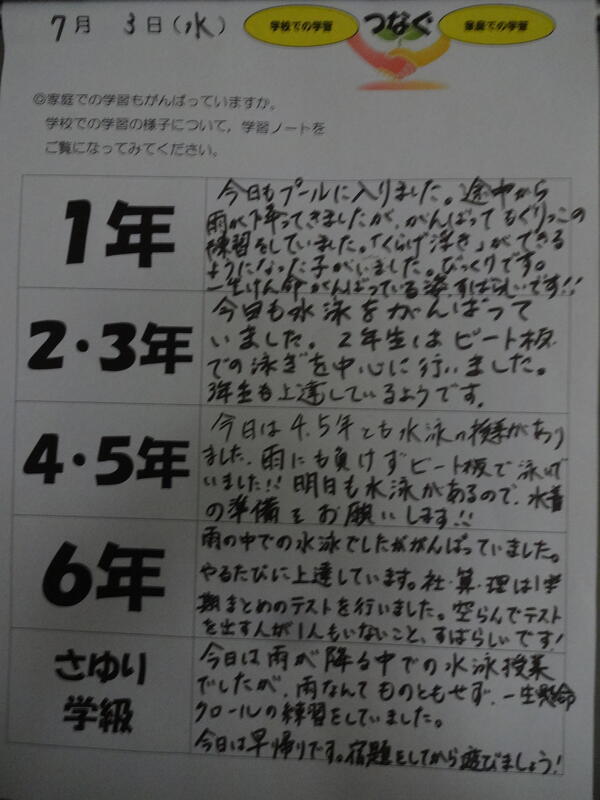 7月 3日(水)
学校での学習 つなぐ 家庭での学習
◎家庭での学習もがんばっていますか。
学校での学習の様子について,学習ノートを
ご覧になってみてください。
1年
今日もプールに入りました。途中から
雨が降ってきましたが、がんばってもぐりっこの
練習をしていました。「くらげ浮き」ができる
ようになった子がいました。びっくりです。
一生けん命がんばっている姿、すばらしいです!!
2・3年
今日も水泳をがんばって
いました。2年生はビート板
での泳ぎを中心に行いました。
3年生も上達しているようです。
4・5年
今日は4.5年とも水泳の授業があり
ました。雨にも負けずビート板で泳いで
いました!!明日も水泳があるので、水着
の準備をお願いします!!
6年
雨の中での水泳でしたががんばっていました。
やるたびに上達しています。社・算・理は1学
期まとめのテストを行いました。空らんでテスト
を出す人が1人もいないこと、すばらしいです!
さゆり
学級
今日は雨が降る中での水泳授業
でしたが、雨なんてものともせず、一生懸命
クロールの練習をしていました。
今日は早帰りです。宿題をしてから遊びましょう!